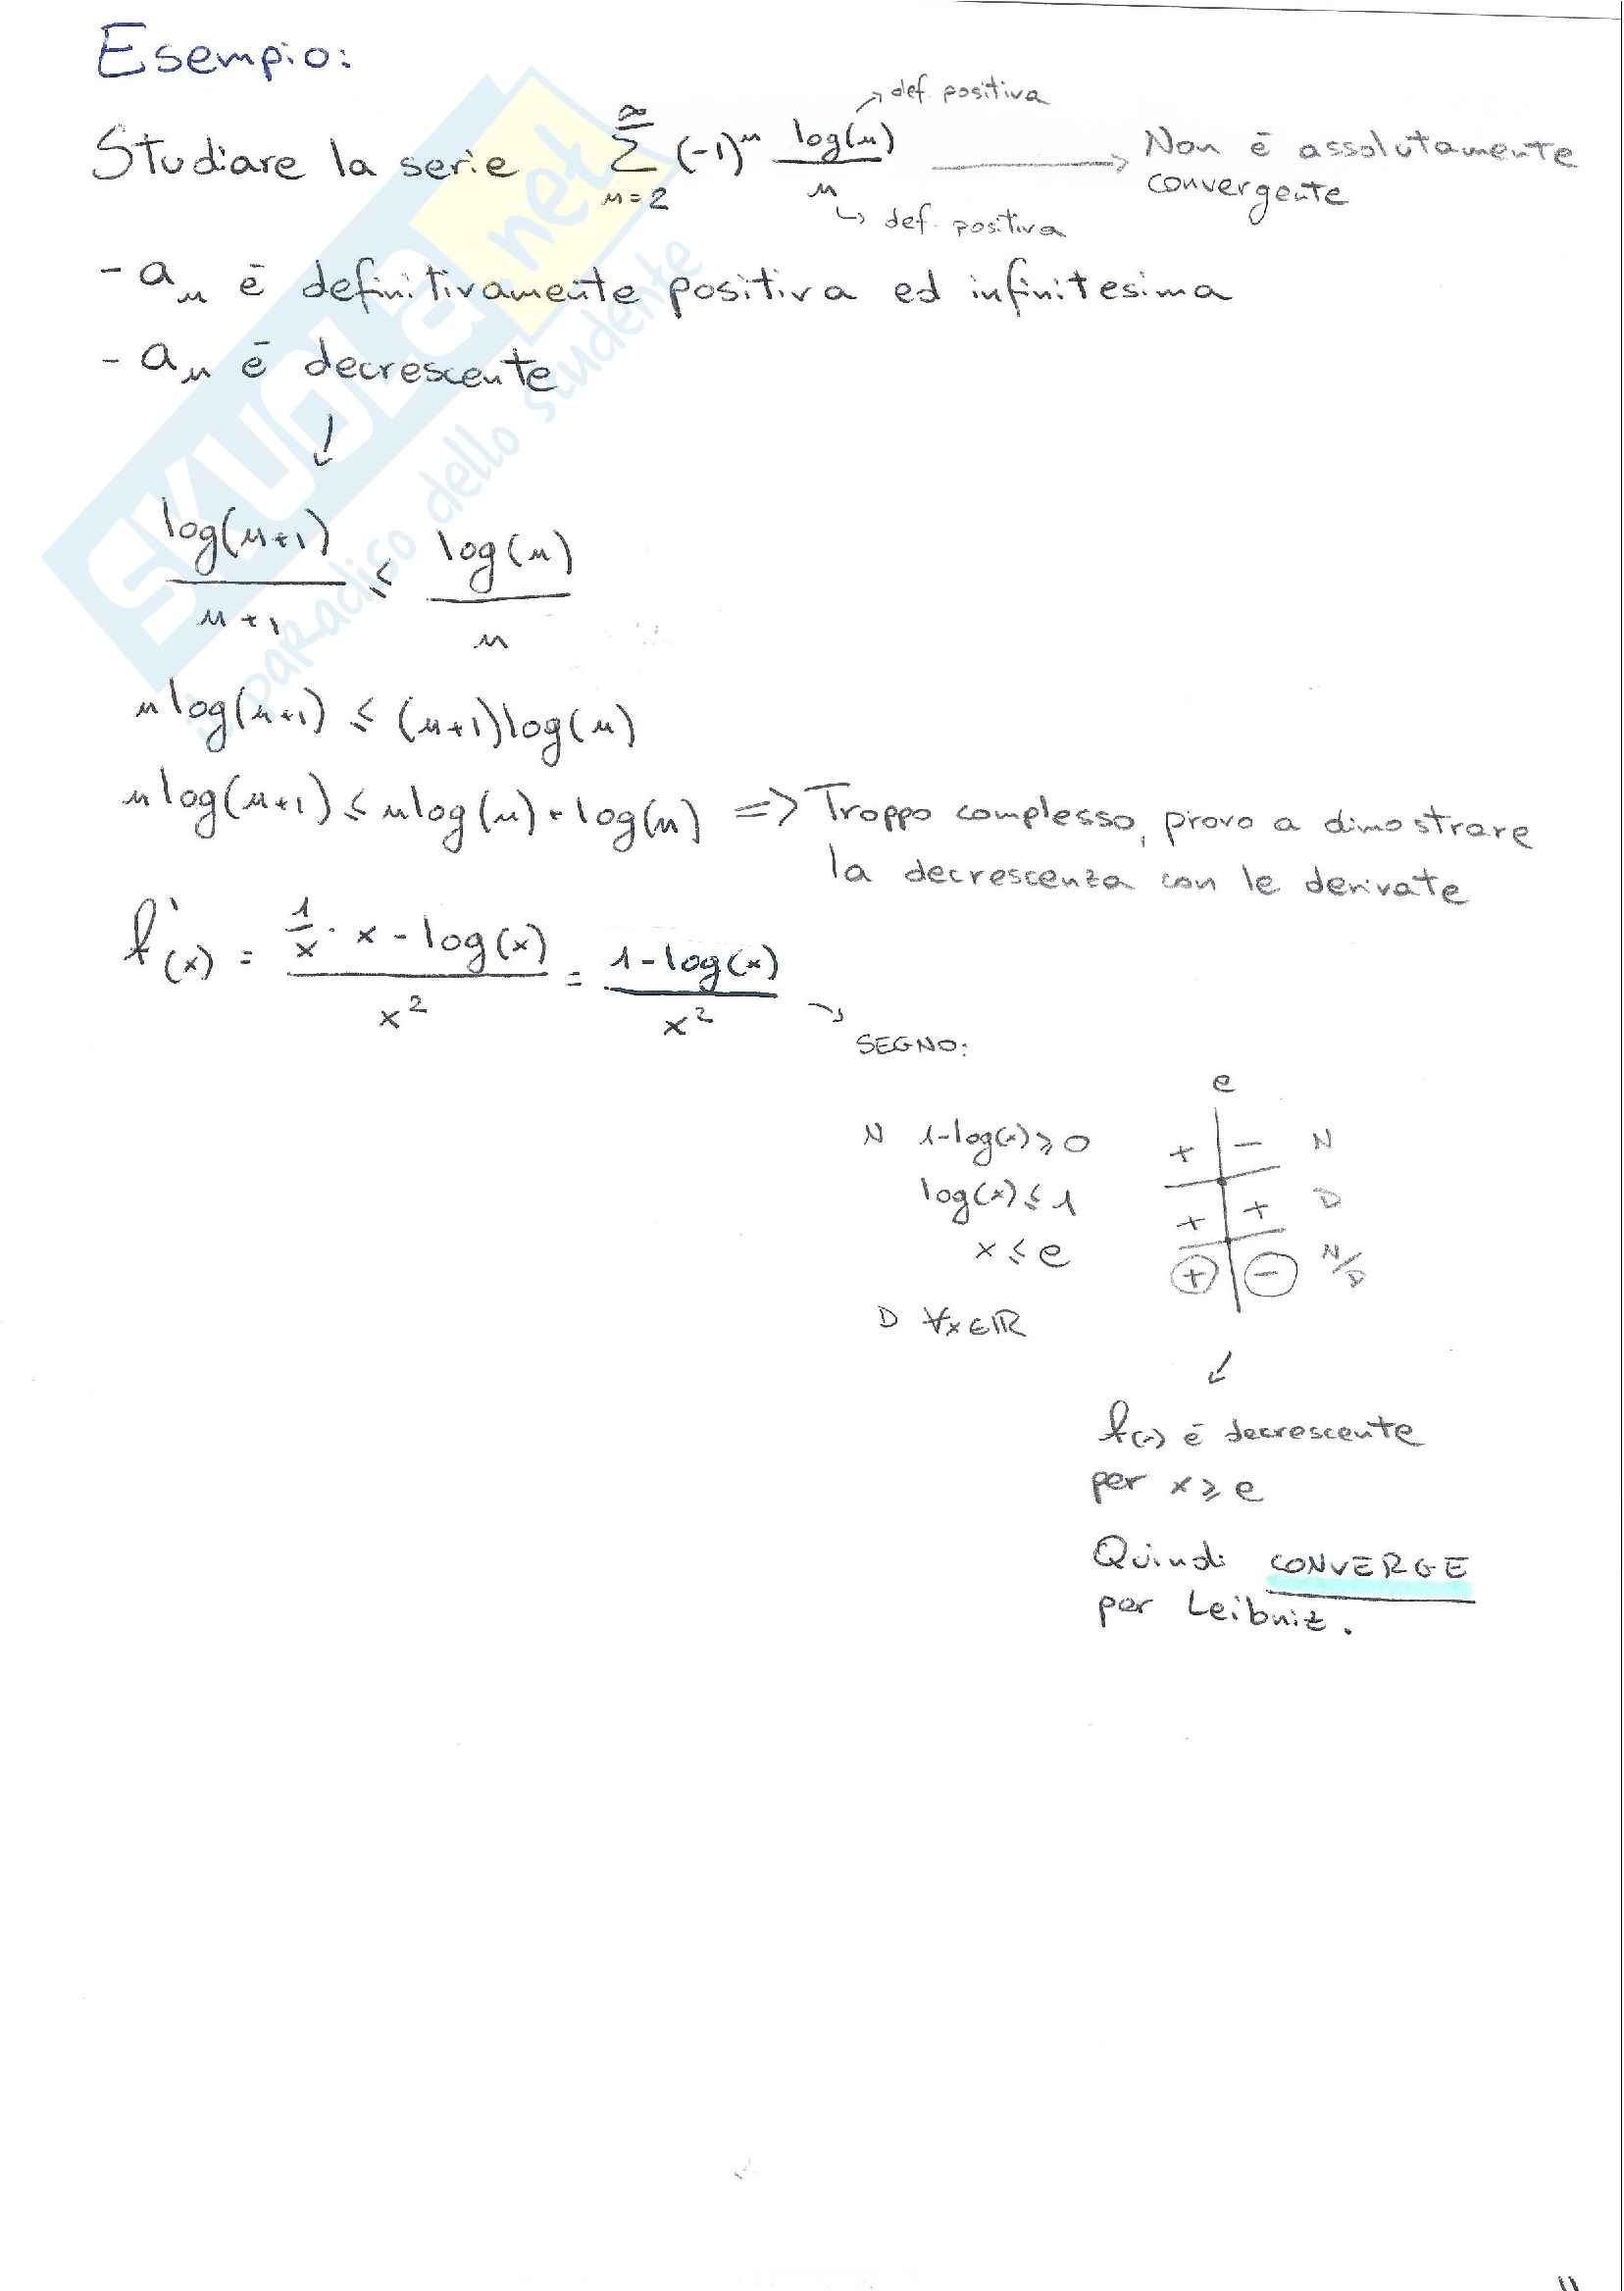 Esempio:
Studiare la serie ∞Σn=2 (-1)^n log(n)/n → Non è assolutamente convergente
→ def. positiva
↳ def. positiva
- an è definitivamente positiva ed infinitesima
- an è decrescente
↓
log(n+1)/n+1 ≤ log(n)/n
n log(n+1) ≤ (n+1)log(n)
n log(n+1) ≤ n log(n) + log(n) => Troppo complesso, provo a dimostrare
la decrescenza con le derivate
f'(x) = (1/x · x - log(x))/x² = (1-log(x))/x²
SEGNO:
e
N 1-log(x) ≥ 0
log(x) ≤ 1
x ≤ e
D ∀x∈ℝ
+ - N
+ + D
+ - N/D
f(x) è decrescente
per x ≥ e
Quindi CONVERGE
per Leibniz.
SKUOLA.net
il paradiso dello studente